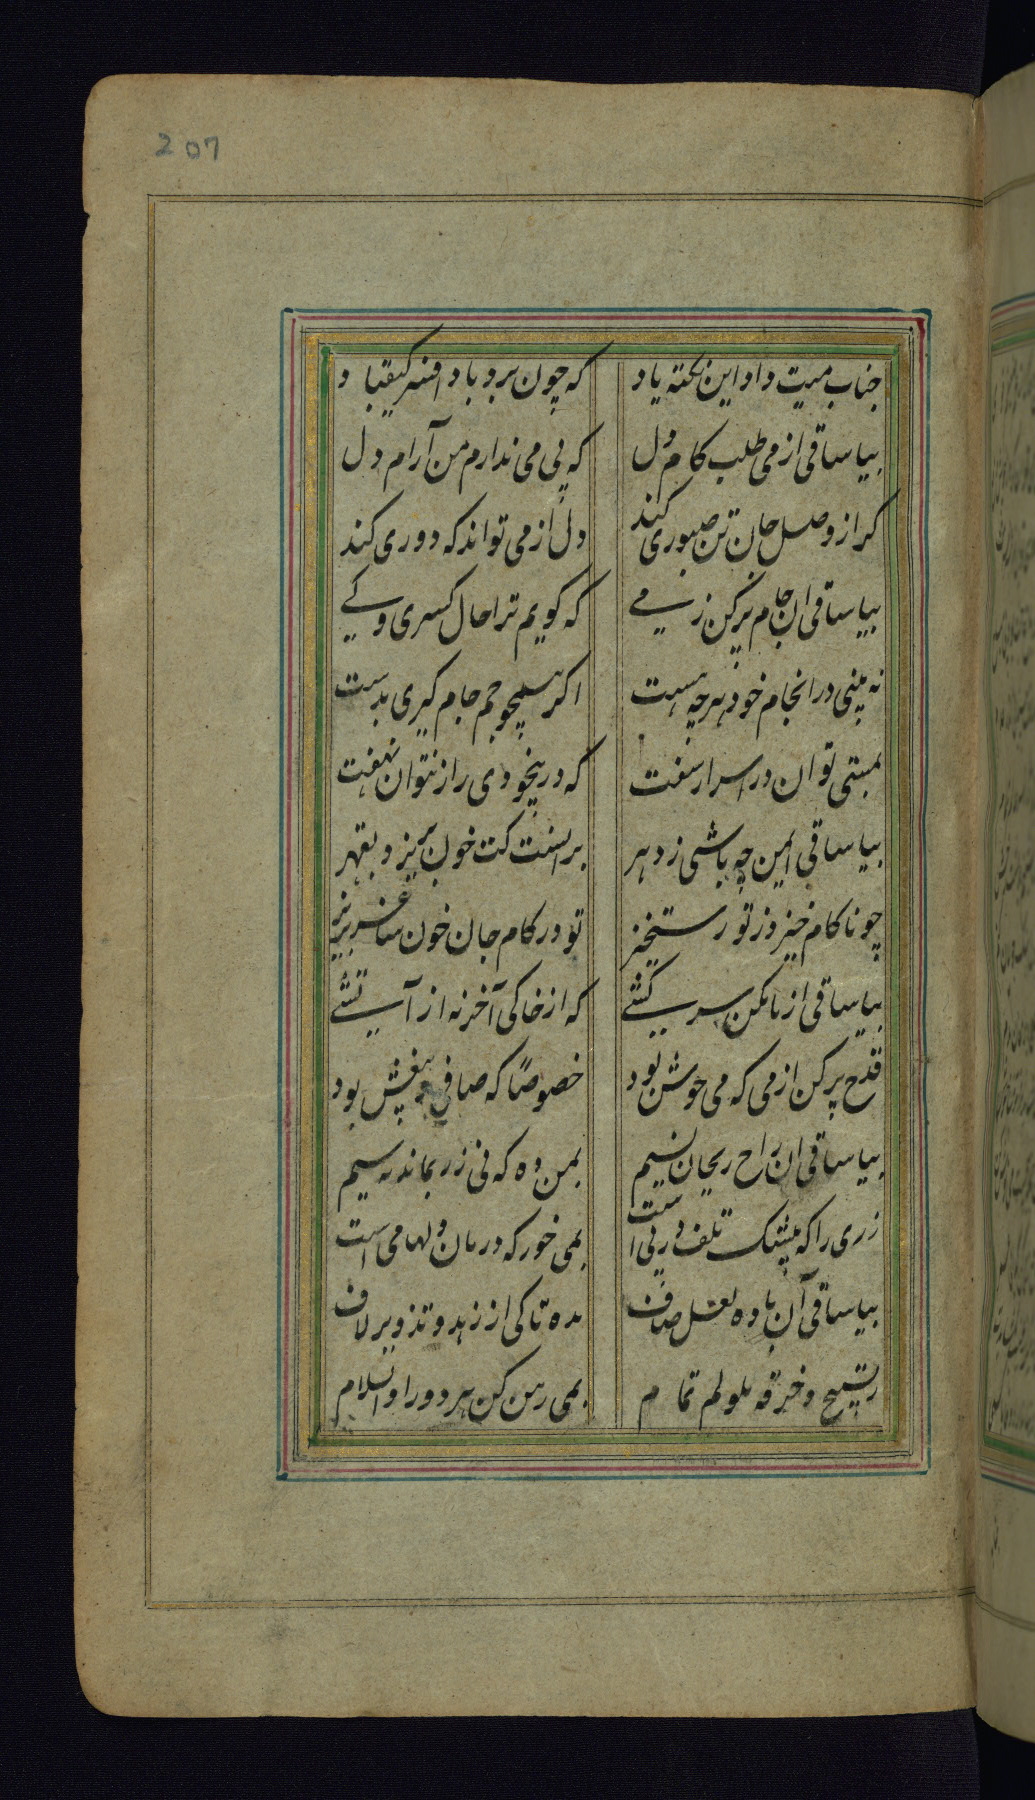 207
جناب میت داد این نکته یاد
که چون برد باد افسر کیقباد
بیا ساقی از می طلب کام دل
که بی می ندارم من آرام دل
کر از وصل جان تن صبوری کند
دل از می تواند که دوری کند
بیا ساقی ان جام پر کن ز می
که کویم ترا حال کسری و کی
نه بینی در انجام خود هرچه هست
اکر همچو جم جام کیری بدست
بمستی توان در اسرار سفت
که در بیخودی راز نتوان نهفت
بیا ساقی ایمن چه باشی ز دهر
بر انست کت خون بریزد بقهر
چو ناکام خیزد ز تو رستخیز
تو در کام جان خون ساغر بریز
بیا ساقی از ما مکن سرکشی
که از خاکی آخر نه از آتشی
قدح پر کن از می که می خوش بود
خصوصًا که صافی و بیغش بود
بیا ساقی ان راح ریحان نسیم
بمن ده که نی زر بماند نه سیم
زری را که بیشک تلف در پی است
بمی خور که درمان دلها می است
بیا ساقی آن باده لعل صاف
بده تا کی از زهد و تزویر لاف
ز تسبیح و خرقه ملولم تمام
بمی رهن کن هر دو را والسلام